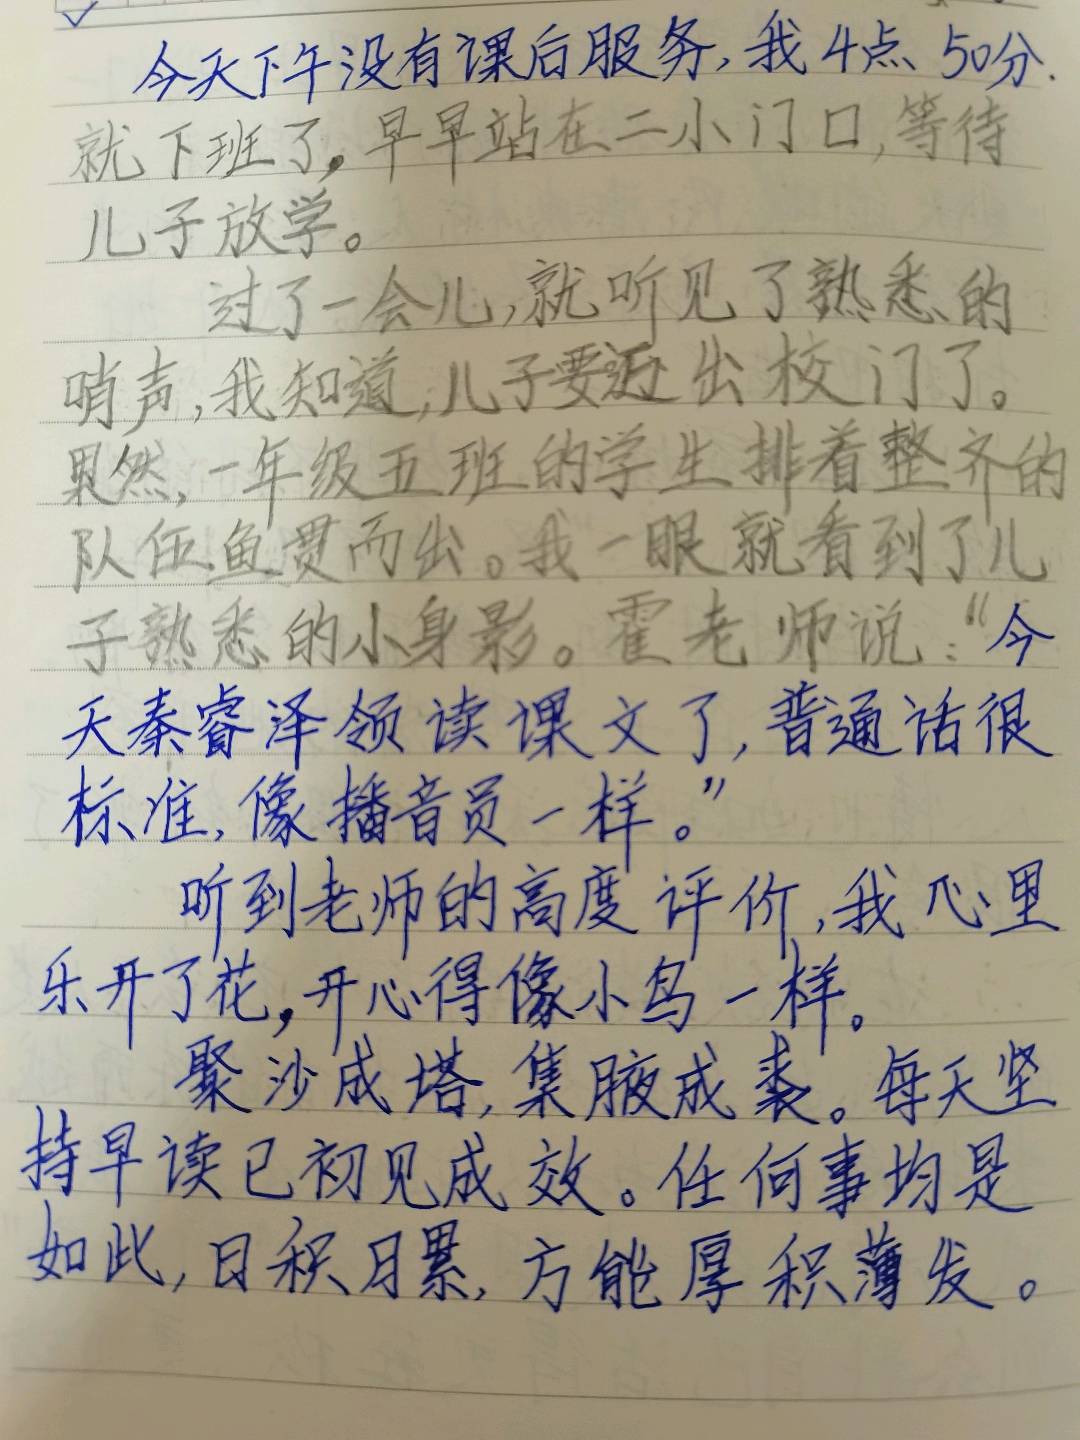 今天下午没有课后服务,我4点50分.
就下班了,早早站在二小门口,等待
儿子放学。
过了一会儿,就听见了熟悉的
哨声,我知道,儿子要迈出校门了。
果然,一年级五班的学生排着整齐的
队伍鱼贯而出。我一眼就看到了儿
子熟悉的小身影。霍老师说:“今
天秦睿泽领读课文了,普通话很
标准,像播音员一样。”
听到老师的高度评价,我心里
乐开了花,开心得像小鸟一样。
聚沙成塔,集腋成裘。每天坚
持早读已初见成效。任何事均是
如此,日积月累,方能厚积薄发。